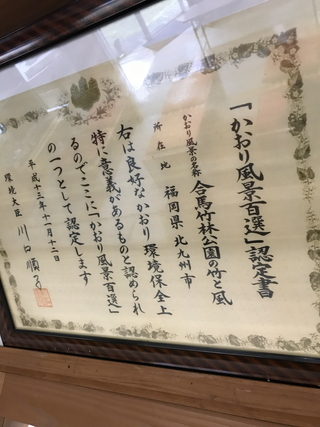 「かおり風景百選」認定書
かおり風景の名称 合馬竹林公園の竹と風
所在地 福岡県 北九州市
右は良好なかおり環境保全上
特に意義があるものと認められ
るのでここに「かおり風景百選」
の一つとして認定します
平成十三年十一月十二日
環境大臣 川口順子